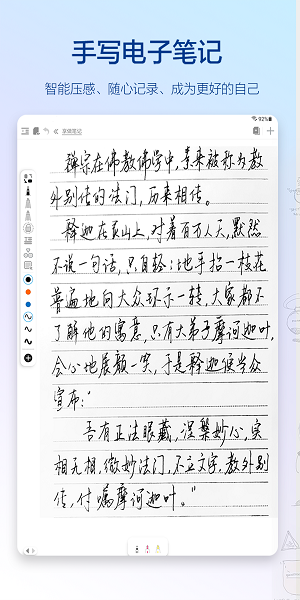 手写电子笔记
智能压感、随心记录、成为更好的自己
92%
享做笔记
禅宗在佛教佛学中，素来被称为教
外别传的法门，历来相传。
释迦在灵山上，对着百万人天，默然
不说一句话，只自轻轻地手拈一枝花
普遍地向大众环示一转，大家都不
了解他的寓意，只有大弟子摩诃迦叶，
会心地展颜一笑，于是释迦便当众
宣布：“
吾有正法眼藏，涅槃妙心，实
相无相，微妙法门，不立文字，教外别
传，付嘱摩诃迦叶。”